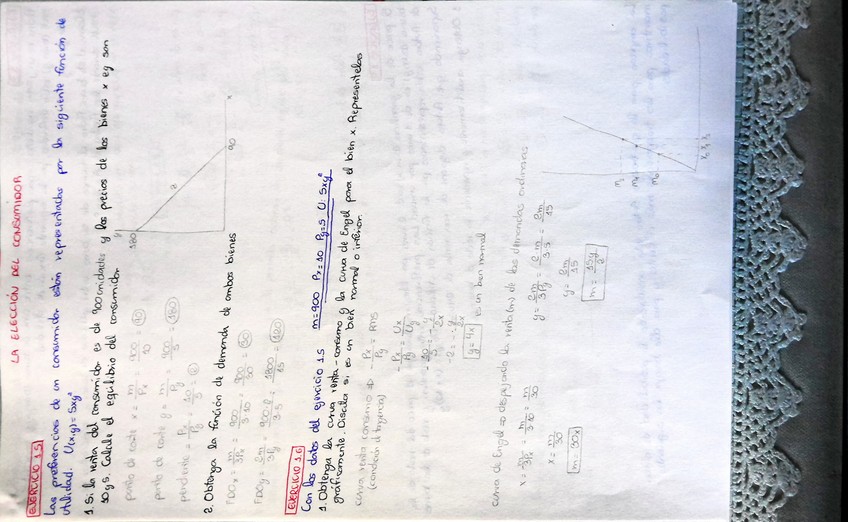 LA ELECCIÓN DEL CONSUMIDOR
EJERCICIO 1.5
Las preferencias de un consumidor están representadas por la siguiente función de
utilidad. U(x,y)=5xy²
1. Si la renta del consumidor es de 900 unidades y los precios de los bienes x e y son
10 y 5. Calcule el equilibrio del consumidor
punto de corte x = m/Px = 900/10 = 90
punto de corte y = m/Py = 900/5 = 180
pendiente = Px/Py = 10/5 = 2
y
180
2
90
x
2. Obtenga la función de demanda de ambos bienes
FDOx = m/3Px = 900/3·10 = 900/30 = 30
FDOy = 2m/3Py = 900·2/3·5 = 1800/15 = 120
EJERCICIO 1.6
Con los datos del ejercicio 1.5 m=900 Px=10 Py=5 U: 5xy²
1. Obtenga la curva renta-consumo y la curva de Engel para el bien x. Represéntelas
gráficamente. Discuta si es un bien normal o inferior.
curva renta consumo => -Px/Py = RMS
(condición de tangencia)
-Px/Py = Ux/Uy
-10/5 = -y/2x
-2 = -y/2x
y=4x es un bien normal
curva de Engel => despejando la renta (m) de las demandas ordinarias
x = m/3Px = m/3·10 = m/30
x = m/30
m=30x
y = 2m/3Py = 2·m/3·5 = 2m/15
y = 2m/15
m = 15y/2